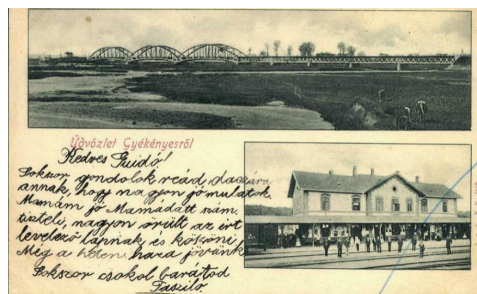 Üdvözlet Gyékényesről
Kedves Guidó!
Sokszor gondolok reád, daczára
annak, hogy nagyon jó mulatok.
Mamám jó Mamádátt szám.
tiszteli, nagyon örült az írt
levelező lapnak, és köszöni,
Még a héten haza jövünk
Sokszor csokol barátod
Taszilo